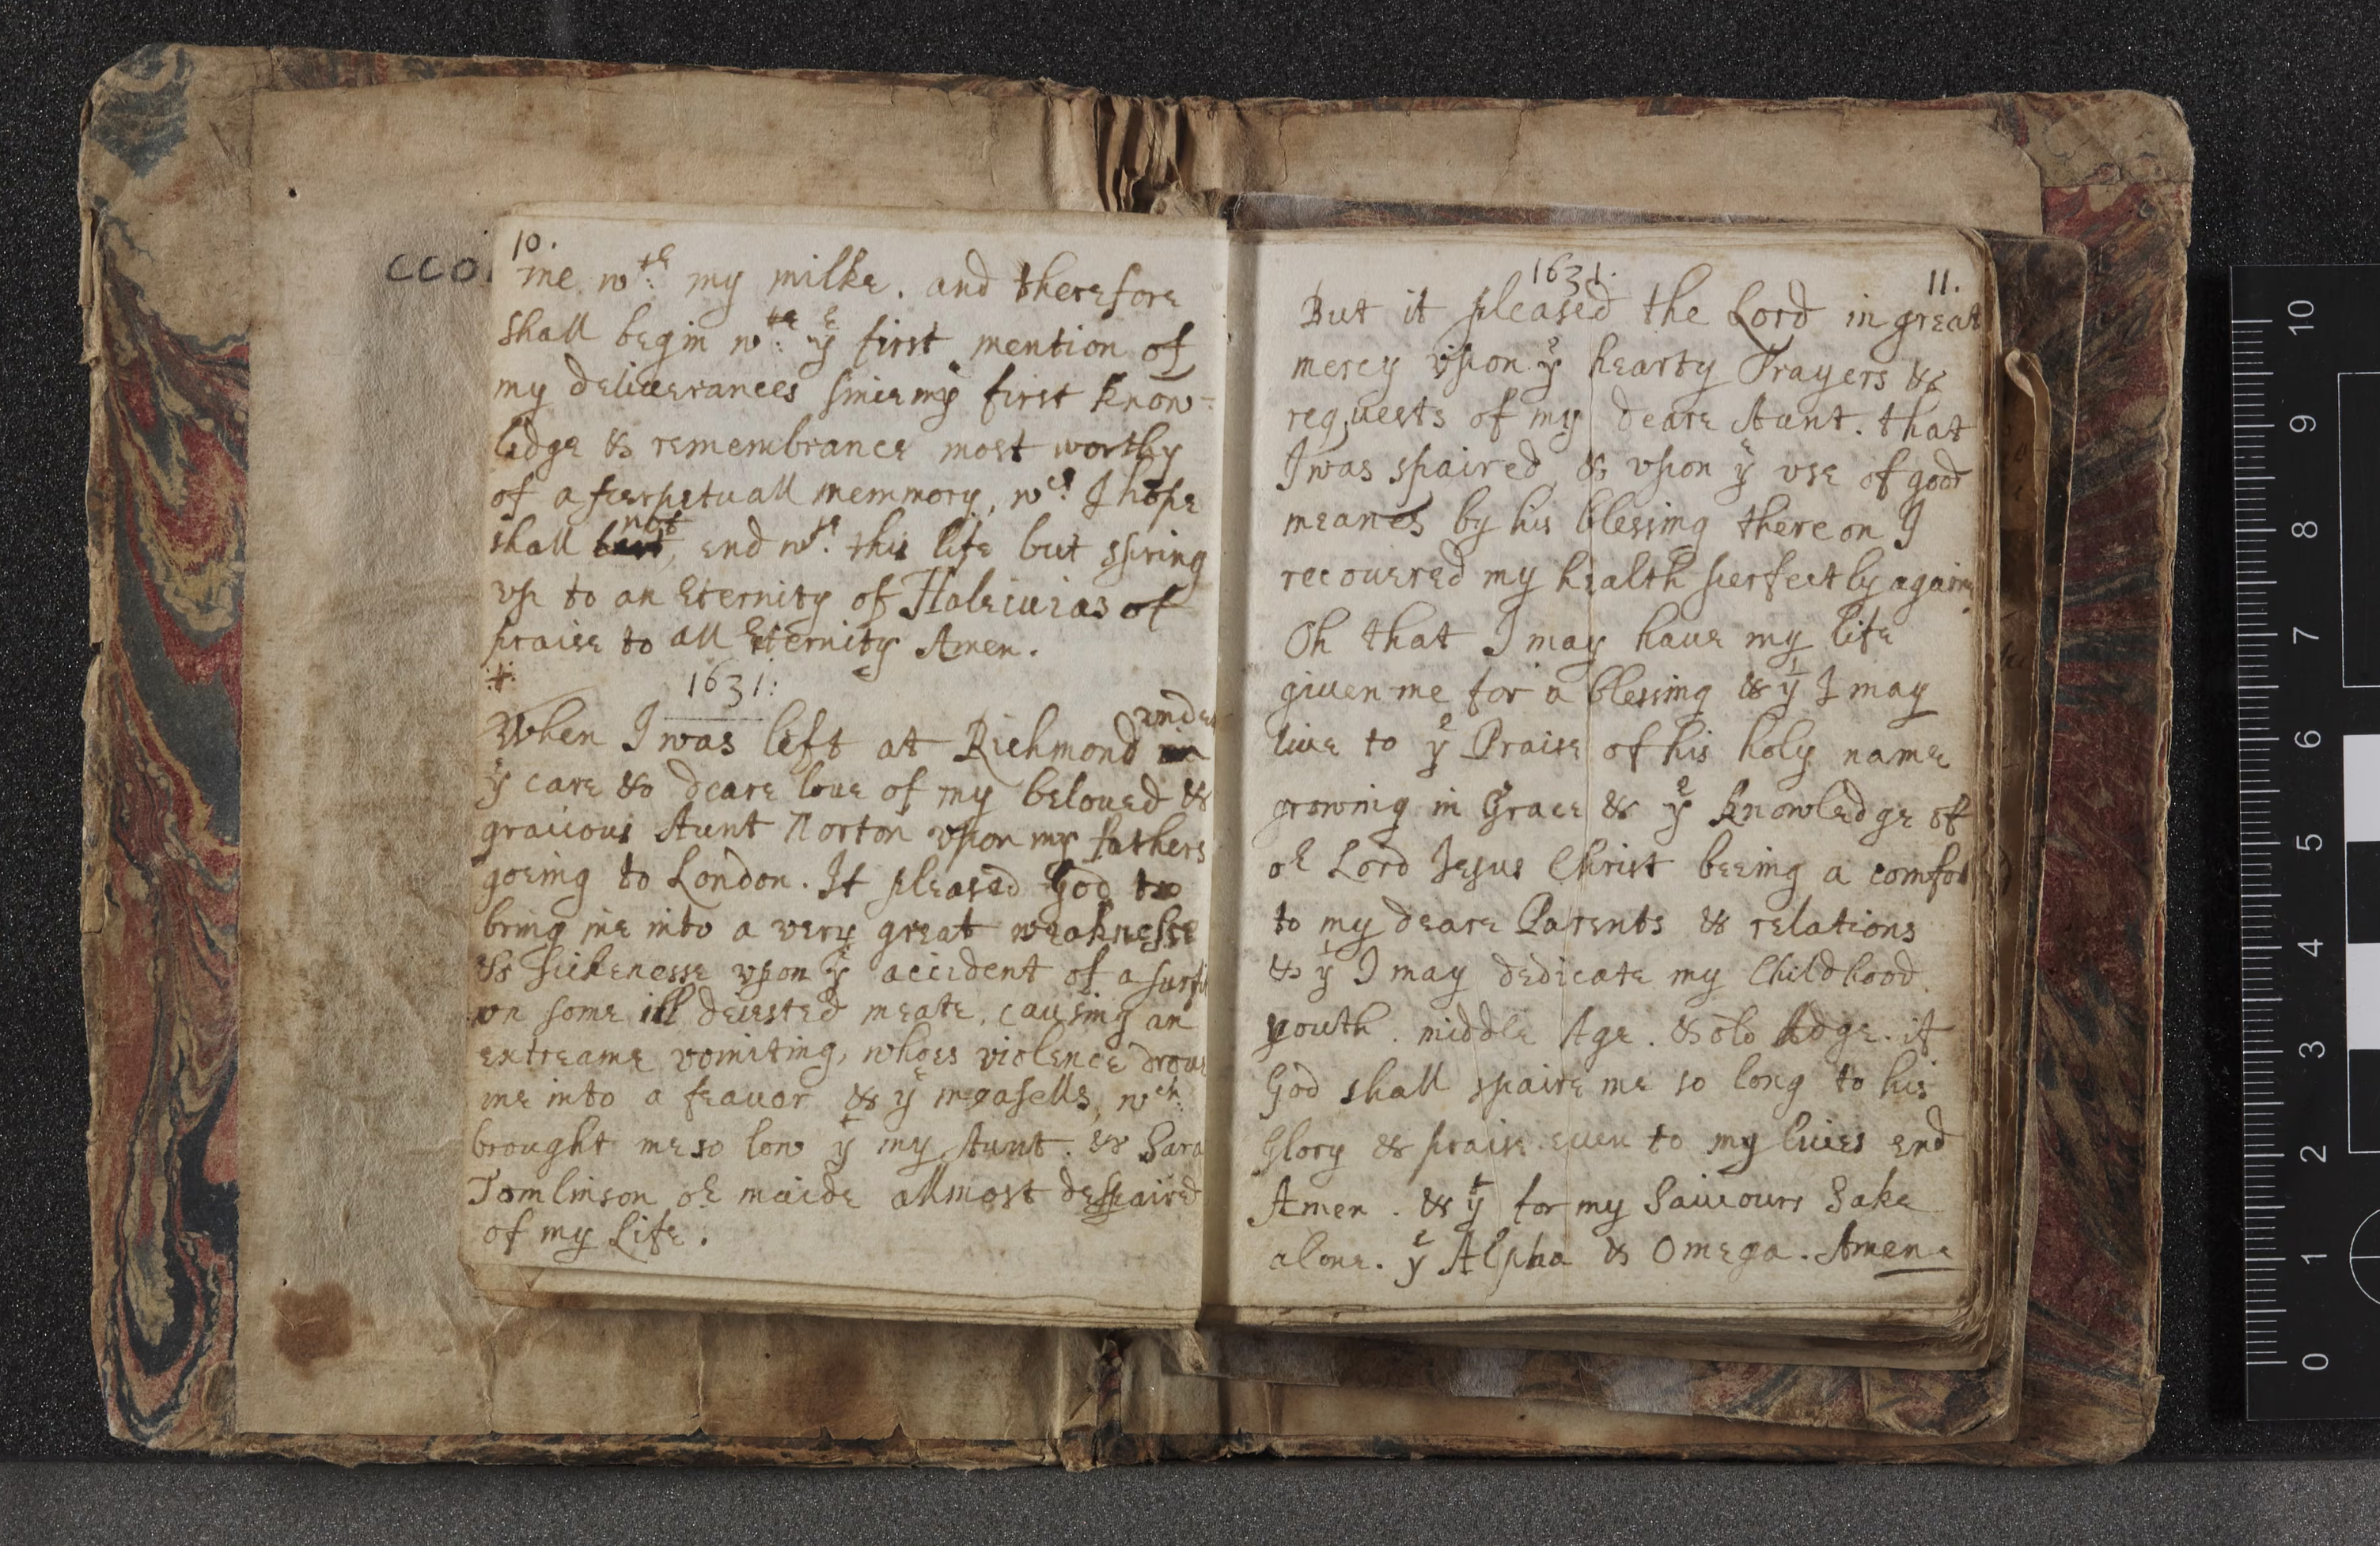 CCO
10.
me wth: my milke. and therefore
shall begin wth: ye first mention of
my deliuerances since my first know-
lidge & remembrance most worthy
of a perpetuall memmory, wch: I hope
shall not end wth: this life but spring
vp to an Eternity of Haleluias of
praise to all Eternity Amen.
1631:
When I was left at Richmond under
ye care & deare loue of my beloued &
gracious Aunt Norton vpon my fathers
goeing to London. It pleased God to
bring me into a very great weaknesse
& sickenesse vpon ye accident of a surfit
on some ill deiested meate, causing an
extreame vomiting, whoes violence droue
me into a feauor & ye measelLs, wch:
brought me so low yt my Aunt. & Sara
Tomlinson or maide allmost despaired
of my Life.
1631.
11.
But it pleased the Lord in great
mercy vpon ye hearty Prayers &
requests of my deare Aunt. that
I was spaired, & vpon ye vse of good
meanes by his blessing there on I
recouered my health perfectly againe
Oh that I may haue my life
giuen me for a blessing & yt I may
liue to ye Praise of his holy name
growing in Grace & ye knowledge of
or Lord Jesus Christ beeing a comfort
to my deare Parents & relations
& yt I may dedicate my Childhood.
youth. middle Age. & old Adge. if
God shall spaire me so long to his
Glory & praise euen to my liues end
Amen. & yt for my Sauiours Sake
alone. ye Alpha & Omega. Amen
0 1 2 3 4 5 6 7 8 9 10